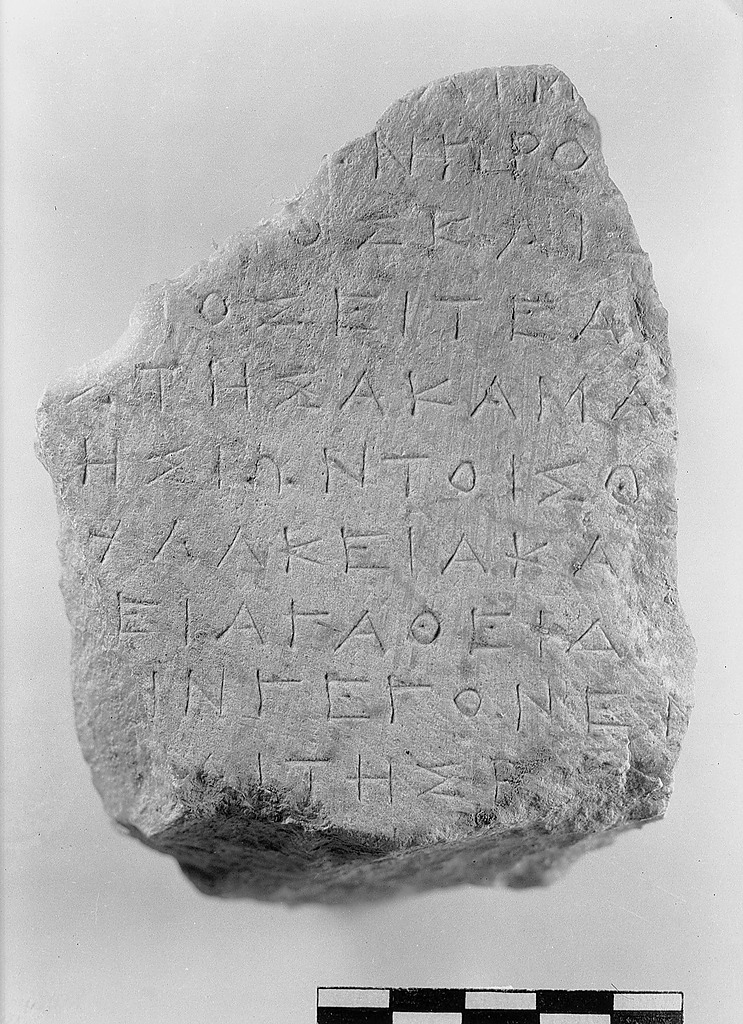 ΝΤΙΡΟ
ΟΣΚΑΙ
ΙΟΣΕΙΤΕΑ
ΤΗΣΑΚΑΜΑ
ΗΣΙΩΝΤΟΙΣΘ
ΑΛΚΕΙΑΚΑ
ΕΙΑΓΑΘΕΙΔ
ΙΝΓΕΓΟΝΕΝ
ΙΤΗΣΡ